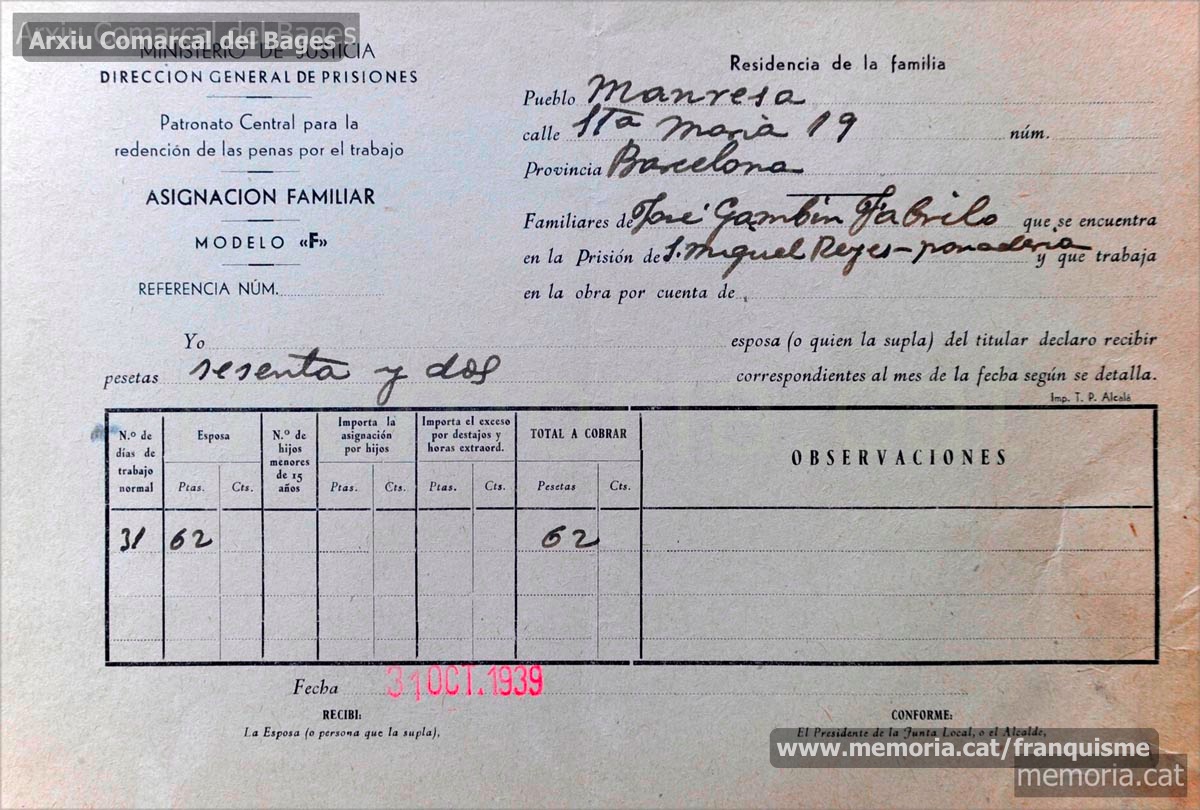 Arxiu Comarcal del Bages
Arxiu Comarcal del Bages
MINISTERIO DE JUSTICIA
DIRECCION GENERAL DE PRISIONES
Patronato Central para la
redención de las penas por el trabajo
ASIGNACION FAMILIAR
MODELO «F»
REFERENCIA NÚM.
Residencia de la familia
Pueblo Manresa
calle Sta Maria 19 núm.
Provincia Barcelona
Familiares de José Gambín Fabrilo que se encuentra
en la Prisión de S. Miguel Reyes - panaderia y que trabaja
en la obra por cuenta de
Yo esposa (o quien la supla) del titular declaro recibir
pesetas sesenta y dos correspondientes al mes de la fecha según se detalla.
Imp. T. P. Alcalá
N.º de días de trabajo normal
Esposa
Ptas. Cts.
N.º de hijos menores de 15 años
Importa la asignación por hijos
Ptas. Cts.
Importa el exceso por destajos y horas extraord.
Ptas. Cts.
TOTAL A COBRAR
Pesetas Cts.
OBSERVACIONES
31 62 62
Fecha 31 OCT. 1939
RECIBI:
La Esposa (o persona que la supla),
CONFORME:
El Presidente de la Junta Local, o el Alcalde,
www.memoria.cat/franquisme
memoria.cat